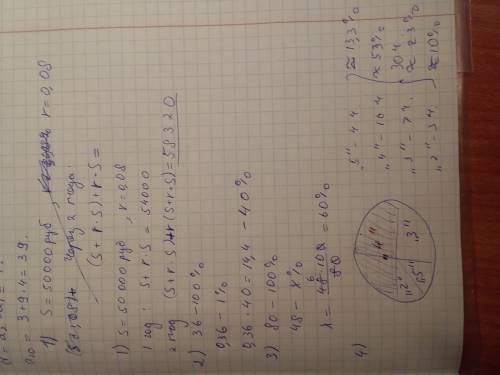 a₁₀ = 3+9·4 = 39.
1) S=50000 руб r=0,08
через 2 года:
(S+r·S)+r·S=
1) S=50 000 руб, r=0,08
1 год: S+r·S = 54000
2 год (S+r·S)+r(S+r·S)=58320
2) 36-100%
0,36-1%
0,36·40=14,4-40%
3) 80-100%
48-x%
x = 48·100/80 = 60%
4)
"4"
"2"
"5"
"3"
"5" - 4 ч ≈ 13,3%
"4" - 16 ч ≈ 53%
30 ч
"3" - 7 ч. ≈ 23%
"2" - 3 ч. ≈ 10%